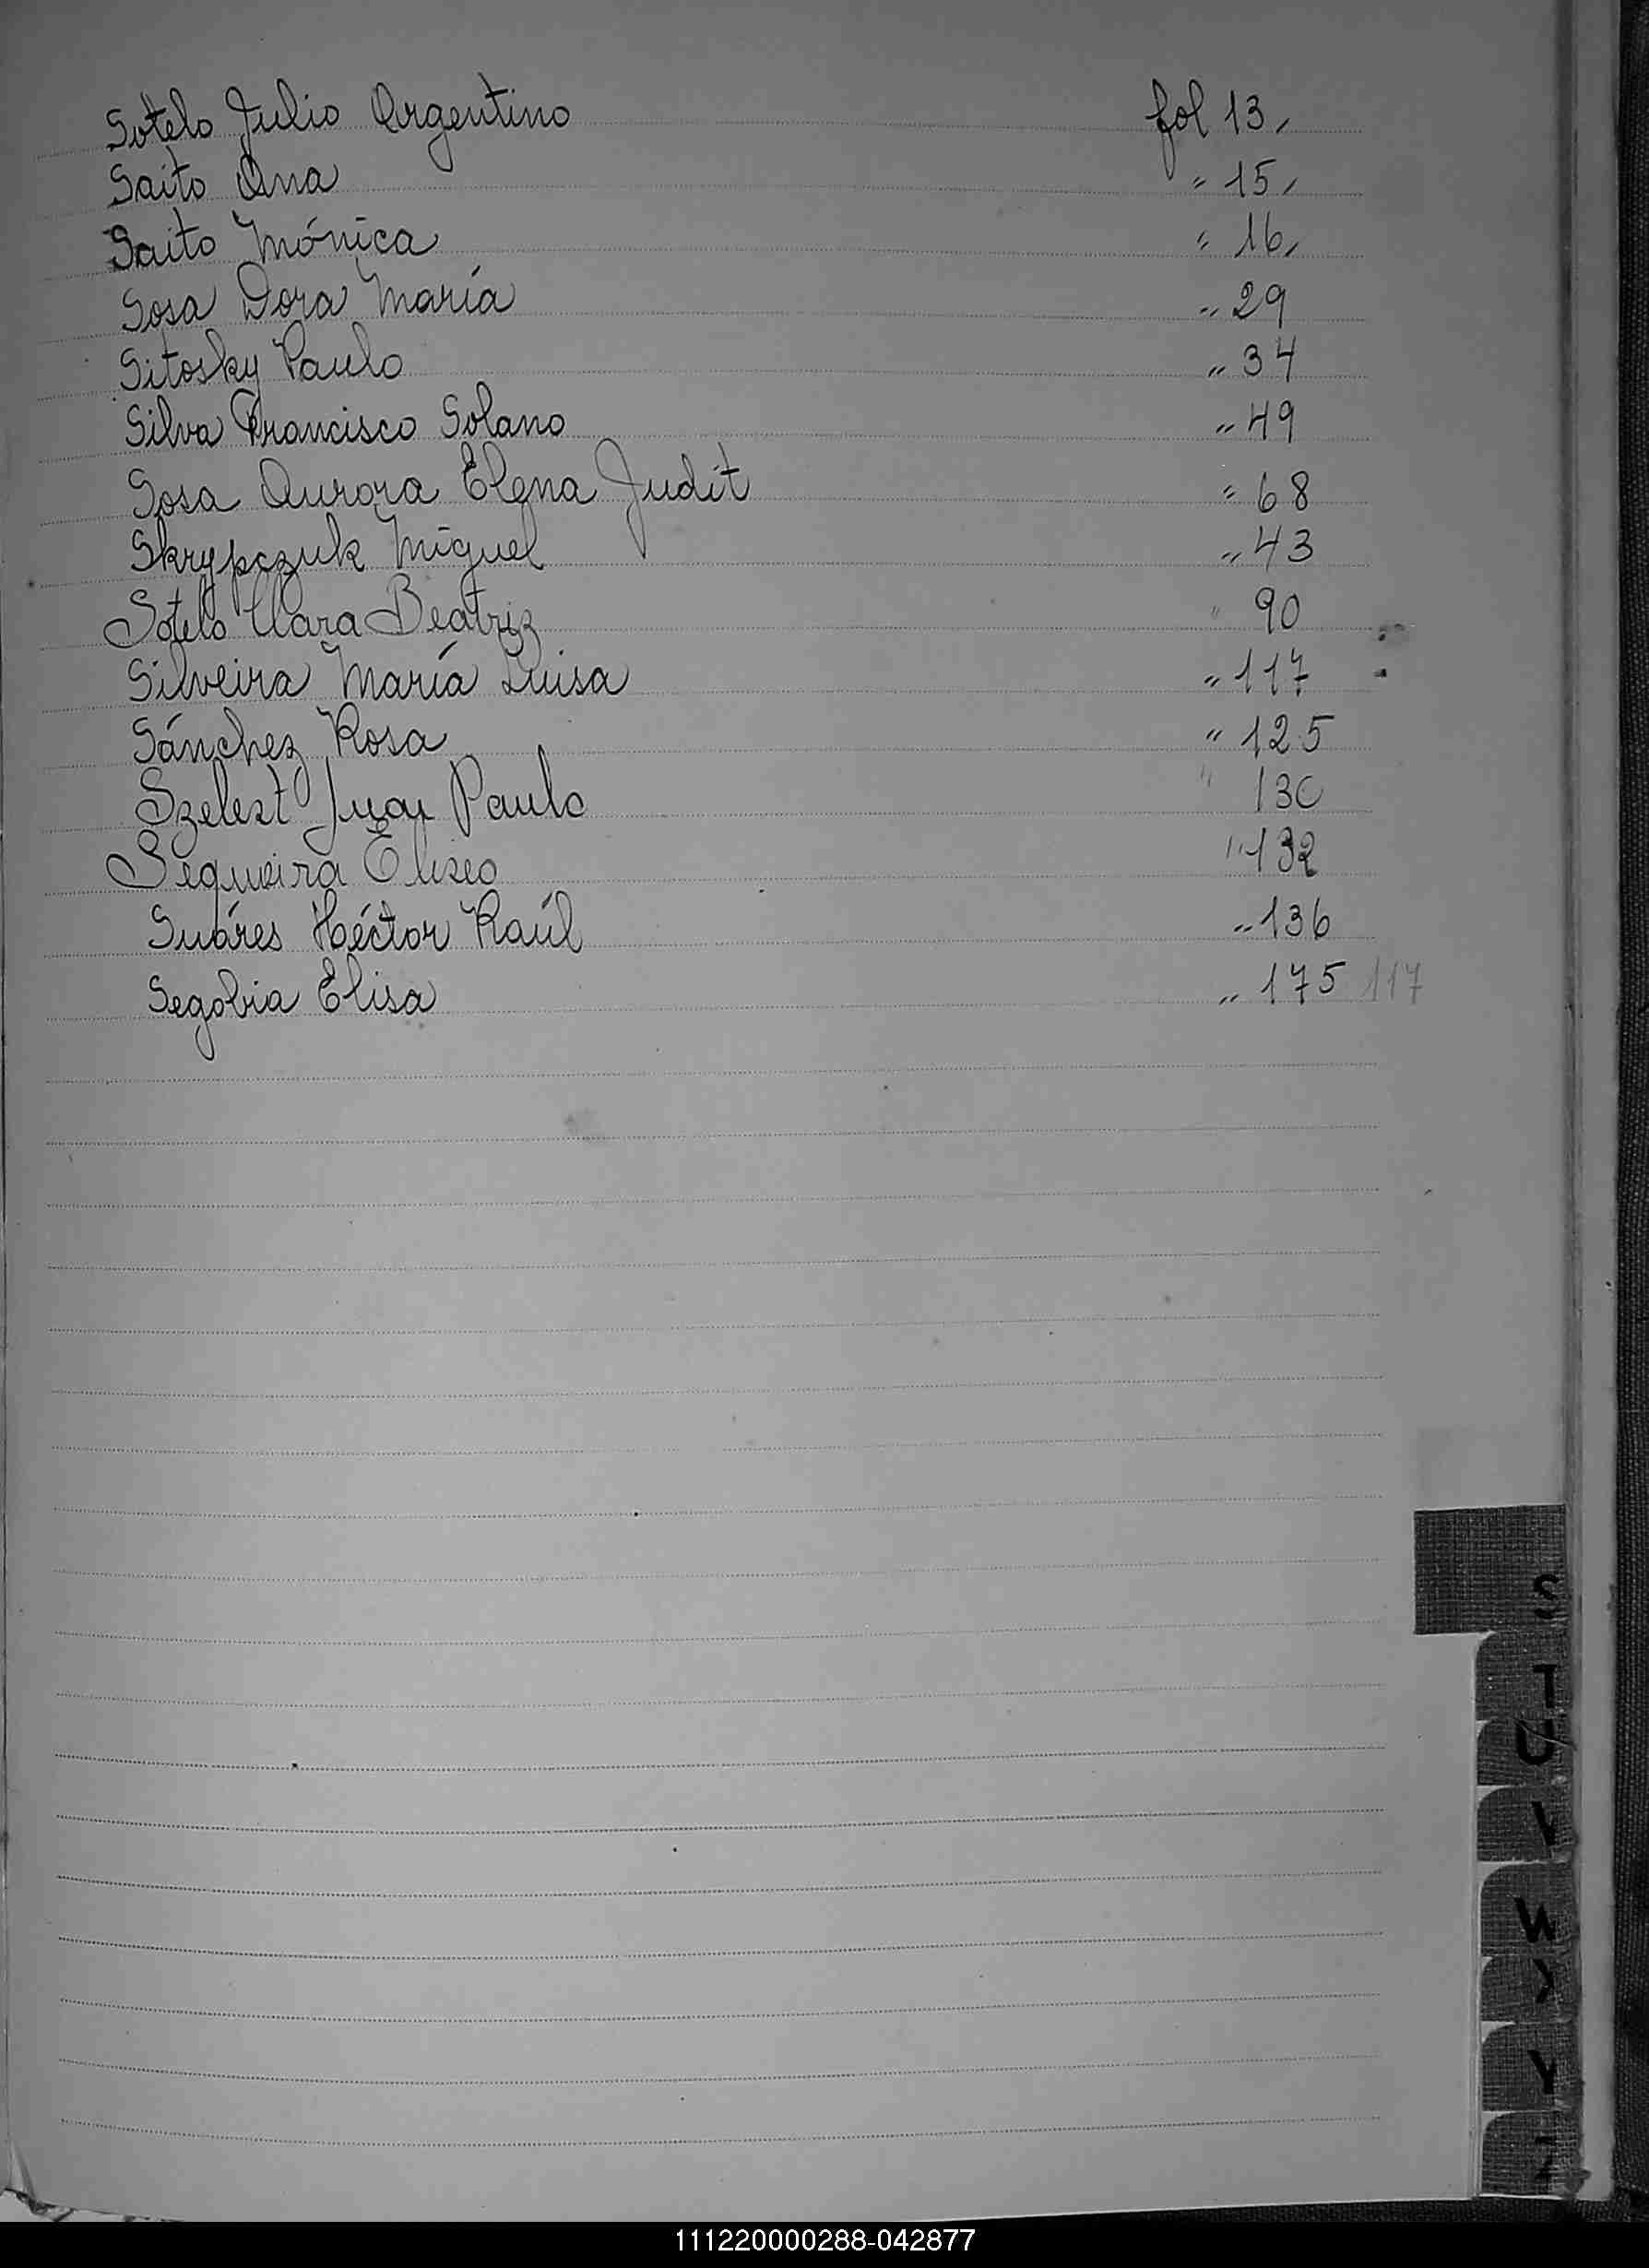 Sotelo Julio Argentino fol 13,
Saito Ana " 15,
Saito Mónica " 16,
Sosa Dora María " 29
Sitosky Paulo " 34
Silva Francisco Solano " 49
Sosa Aurora Elena Judit " 68
Skrypczuk Miguel " 43
Sotelo Clara Beatriz " 90
Silveira María Luisa " 117
Sánchez Rosa " 125
Szelest Juan Paulo " 130
Siqueira Eliseo " 132
Suáres Héctor Raúl " 136
Segobia Elisa " 175 117
S
T
U
V
W
Y
Z
111220000288-042877